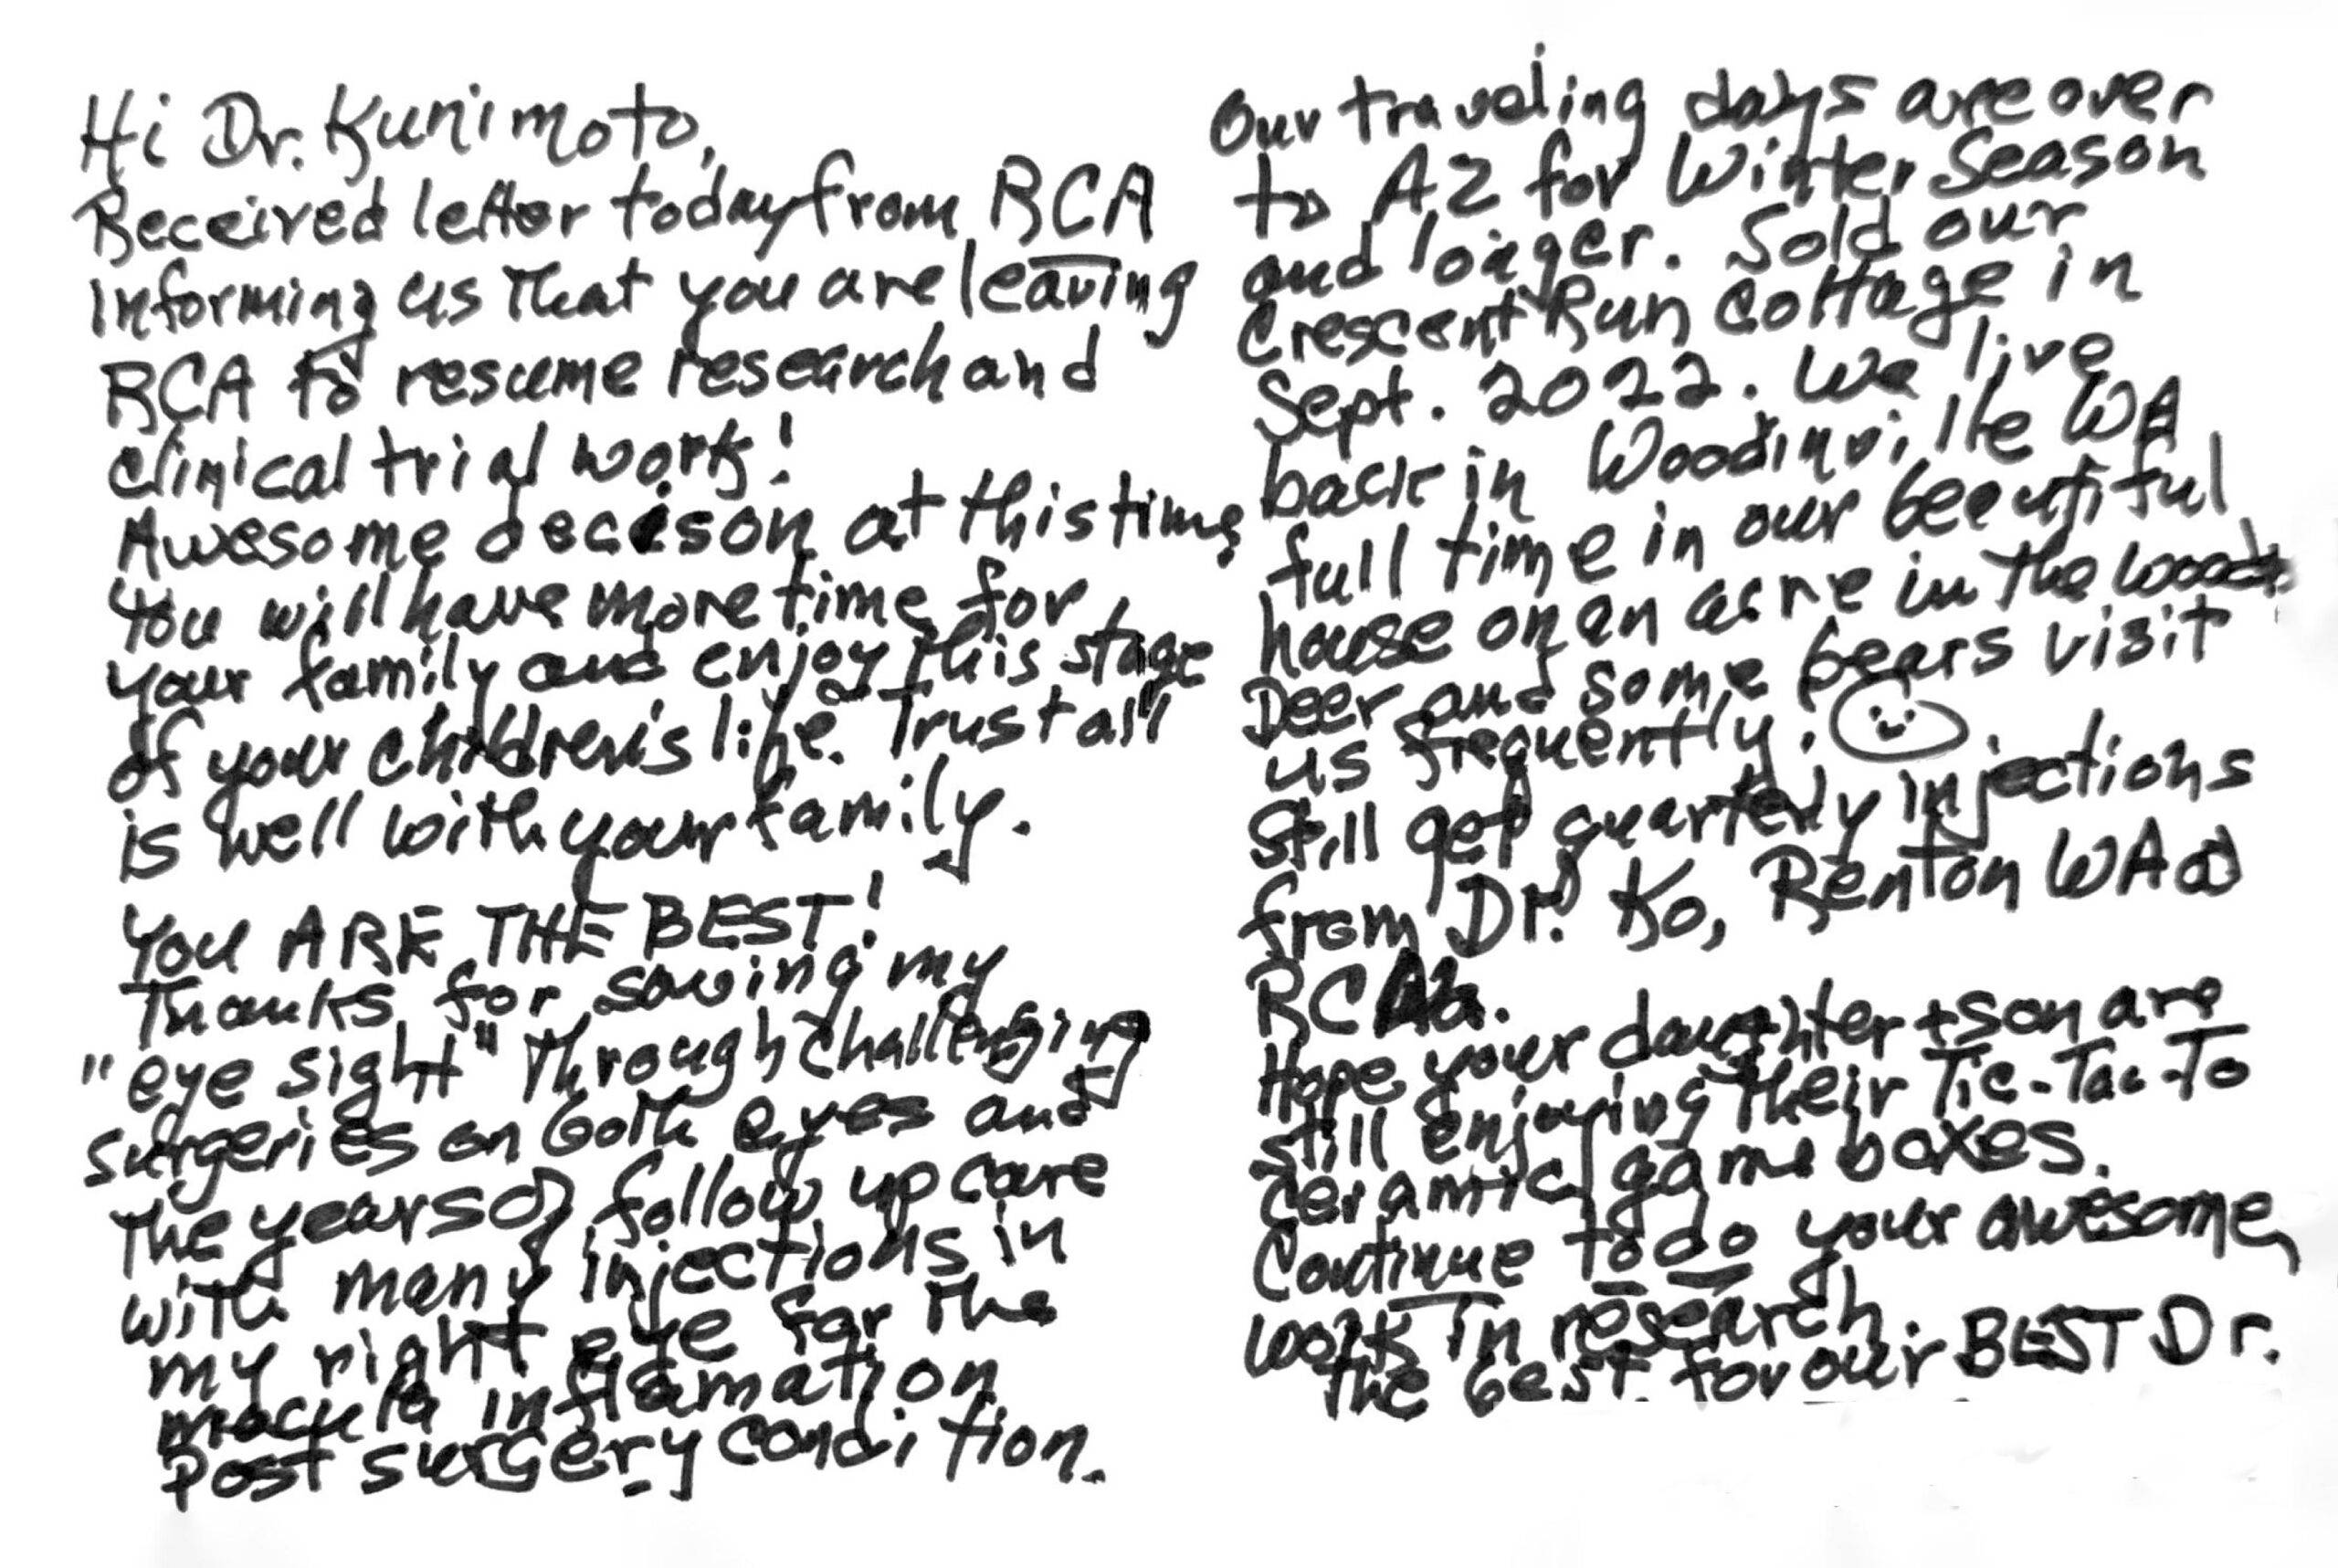 Hi Dr. Kunimoto,
Received letter today from RCA
informing us that you are leaving
RCA to resume research and
clinical trial work!
Awesome decison at this time
You will have more time for
your family and enjoy this stage
of your children's life. Trust all
is well with your family.
You ARE THE BEST!
Thanks for saving my
"eye sight" through challenging
surgeries on both eyes and
the years of follow up care
with many injections in
my right eye for the
macula inflamation
post surgery condition.
Our traveling days are over
to AZ for Winter Season
and longer. Sold our
Crescent Run cottage in
Sept. 2022. We live
back in Woodinville WA
full time in our beautiful
house on an acre in the woods
Deer and some bears visit
us frequently.
Still get quarterly injections
from Dr. Ko, Renton WA @
RCA.
Hope your daughter + son are
still enjoying their Tic-Tac-To
ceramic game boxes.
Continue to do your awesome
work in research.
the best for our BEST Dr.